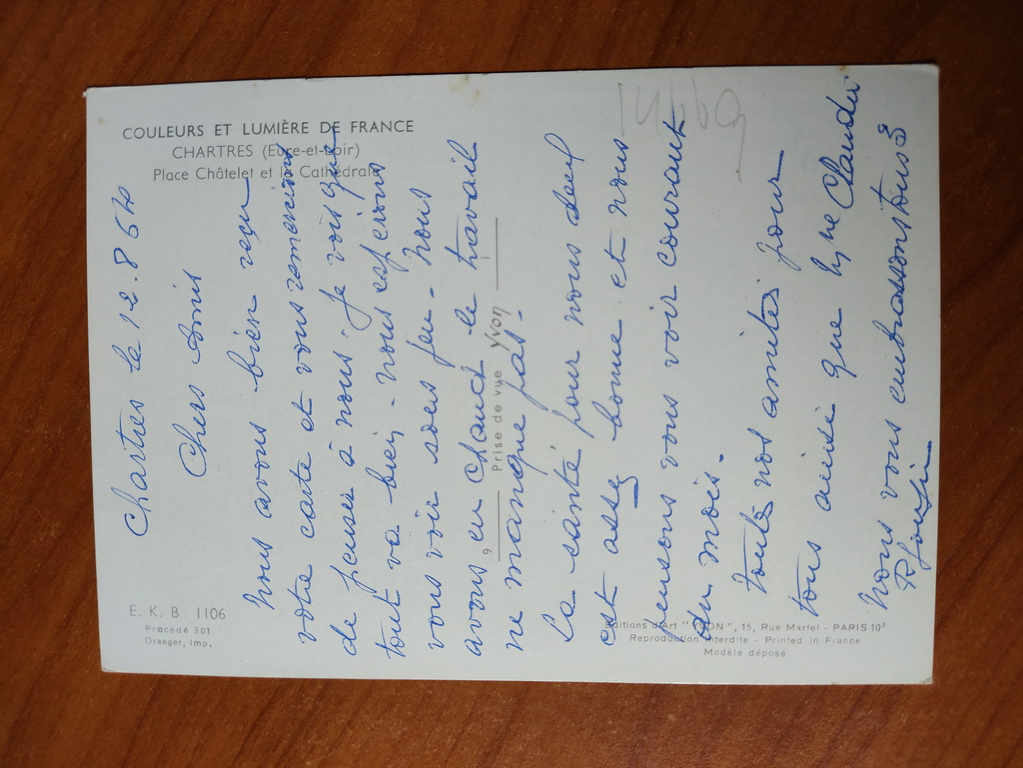 COULEURS ET LUMIÈRE DE FRANCE
CHARTRES (Eure-et-Loir)
Place Châtelet et la Cathédrale
Chartres le 12.8.64
Chers Amis
nous avons bien reçu
votre carte et vous remercions
de penser à nous. Je vois que
tout va bien. nous espérons
vous voir soes peu. nous
avons eu chaud le travail
ne manque pas.
la santé pour nous deux
est assez bonne et nous
pensons vous voir courant
du mois.
toutes nos amitiés pour
tous ainsi que
nous vous embrassons tous
Prise de vue Yvon
E. K. B. 1106
Procédé 301
Draeger, Imp.
Editions d'Art "YVON", 15, Rue Martel - PARIS 10e
Reproduction interdite - Printed in France
Modèle déposé